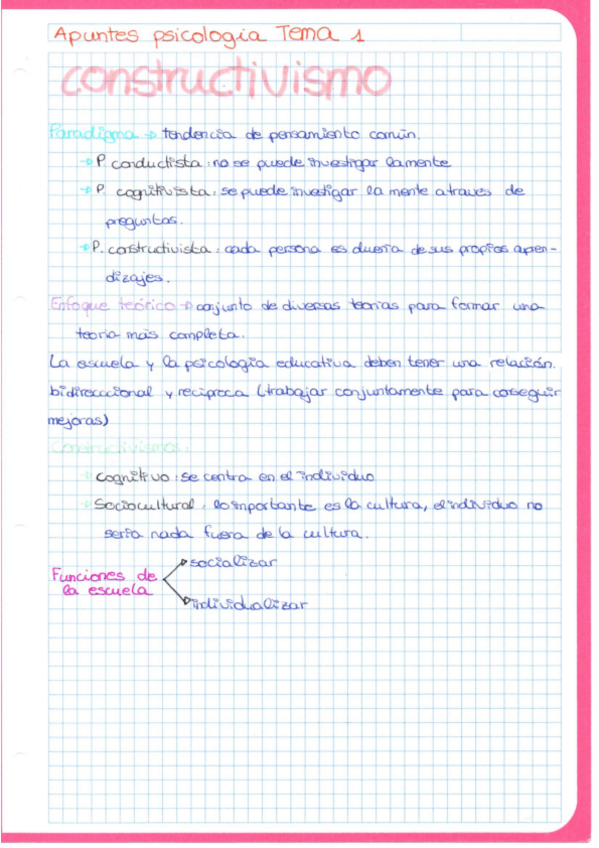 Apuntes psicología Tema 1
constructivismo
Paradigma → tendencia de pensamiento común.
→ P conductista: no se puede investigar la mente
→ P. cognitivista: se puede investigar la mente a traves de
preguntas.
→ P. constructivista: cada persona es dueña de sus propios apren-
dizajes.
Enfoque teórico → conjunto de diversas teorías para formar una
teoria más completa.
La escuela y la psicología educativa deben tener una relación
bidireccional y reciproca (trabajar conjuntamente para conseguir
mejoras)
Constructivismos:
Cognitivo: se centra en el individuo
Sociocultural: lo importante es la cultura, el individuo no
sería nada fuera de la cultura.
Funciones de
la escuela
socializar
individualizar